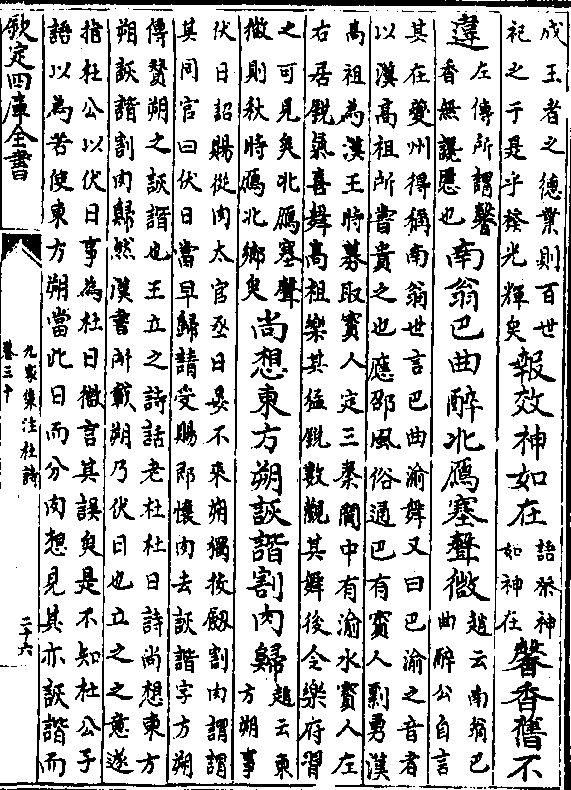 成王者之德業則百世
祀之于是乎發光輝矣
報效神如在
語祭神
如神在
馨香舊不
違
左傳所謂馨
香無讒慝也
南翁巴曲醉北鴈塞聲微
趙云南翁巴
曲醉公自言
其在夔州得稱南翁世言巴曲渝舞又曰巴渝之音者
以漢高祖所嘗貴之也應邵風俗通巴有賨人剽勇漢
高祖為漢王時募取賨人定三秦閬中有渝水賨人左
右居銳氣喜舞高祖樂其猛銳數觀其舞後令樂府習
之可見矣北鴈塞聲
微則秋時鴈北鄉矣
尚想東方朔詼諧割肉歸
趙云東
方朔事
伏日詔賜從肉太官丞日晏不來朔獨拔劔割肉謂謂
其同官曰伏日當早歸請受賜即懷肉去詼諧字方朔
傳贊朔之詼諧也王立之詩話老杜杜日詩尚想東方
朔詼諧割肉歸然漢書所載朔乃伏日也立之之意遂
指杜公以伏日事為杜日微言其誤矣是不知杜公子
語以為苦使東方朔當此日而分肉想見其亦詼諧而
欽定四庫全書
九家集注杜詩
卷三十
二十六